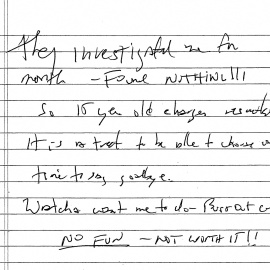 They investigated me for
month - Found NOTHING!!!
So 15 year old charges resu
It is not to be able to choose
time to say goodbye.
Watcha want me to do - Burn out
NO FUN - NOT WORTH IT!!